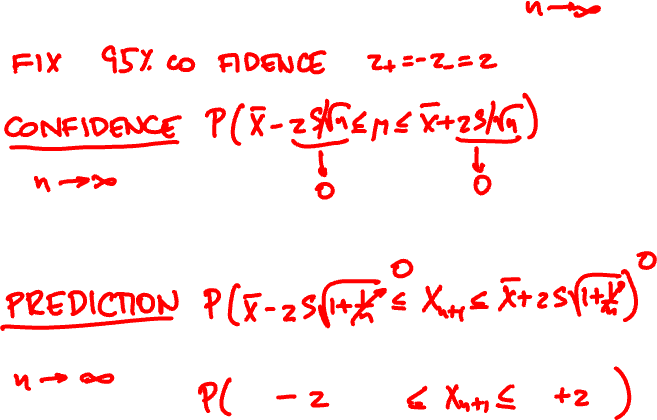 n→∞
FIX 95% CO FIDENCE z₊=-z₋=z
CONFIDENCE P(x̄-zS/√n≤μ≤x̄+zS/√n)
n→∞ 0 0
PREDICTION P(x̄-zS√(1+1/n)→0 ≤ Xₙ₊₁≤ x̄+zS√(1+1/n)→0)
n→∞ P( -z ≤ Xₙ₊₁≤ +z )